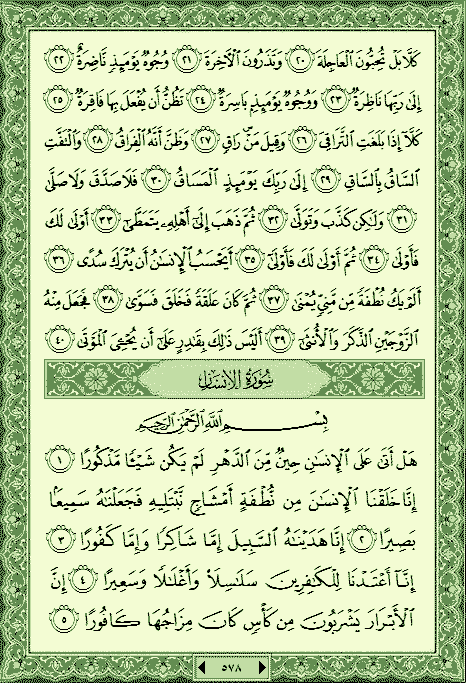 كَلَّا بَلْ تُحِبُّونَ الْعَاجِلَةَ ٢٠ وَتَذَرُونَ الْآخِرَةَ ٢١ وُجُوهٌ يَوْمَئِذٍ نَّاضِرَةٌ ٢٢
إِلَىٰ رَبِّهَا نَاظِرَةٌ ٢٣ وَوُجُوهٌ يَوْمَئِذٍ بَاسِرَةٌ ٢٤ تَظُنُّ أَن يُفْعَلَ بِهَا فَاقِرَةٌ ٢٥
كَلَّا إِذَا بَلَغَتِ التَّرَاقِيَ ٢٦ وَقِيلَ مَنْ رَاقٍ ٢٧ وَظَنَّ أَنَّهُ الْفِرَاقُ ٢٨ وَالْتَفَّتِ
السَّاقُ بِالسَّاقِ ٢٩ إِلَىٰ رَبِّكَ يَوْمَئِذٍ الْمَسَاقُ ٣٠ فَلَا صَدَّقَ وَلَا صَلَّىٰ
٣١ وَلَٰكِن كَذَّبَ وَتَوَلَّىٰ ٣٢ ثُمَّ ذَهَبَ إِلَىٰ أَهْلِهِ يَتَمَطَّىٰ ٣٣ أَوْلَىٰ لَكَ
فَأَوْلَىٰ ٣٤ ثُمَّ أَوْلَىٰ لَكَ فَأَوْلَىٰ ٣٥ أَيَحْسَبُ الْإِنسَانُ أَن يُتْرَكَ سُدًى ٣٦
أَلَمْ يَكُ نُطْفَةً مِّن مَّنِيٍّ يُمْنَىٰ ٣٧ ثُمَّ كَانَ عَلَقَةً فَخَلَقَ فَسَوَّىٰ ٣٨ فَجَعَلَ مِنْهُ
الزَّوْجَيْنِ الذَّكَرَ وَالْأُنثَىٰ ٣٩ أَلَيْسَ ذَٰلِكَ بِقَادِرٍ عَلَىٰ أَن يُحْيِيَ الْمَوْتَىٰ ٤٠
سُورَةُ الْإِنسَانِ
بِسْمِ اللَّهِ الرَّحْمَٰنِ الرَّحِيمِ
هَلْ أَتَىٰ عَلَى الْإِنسَانِ حِينٌ مِّنَ الدَّهْرِ لَمْ يَكُن شَيْئًا مَّذْكُورًا ١
إِنَّا خَلَقْنَا الْإِنسَانَ مِن نُّطْفَةٍ أَمْشَاجٍ نَّبْتَلِيهِ فَجَعَلْنَاهُ سَمِيعًا
بَصِيرًا ٢ إِنَّا هَدَيْنَاهُ السَّبِيلَ إِمَّا شَاكِرًا وَإِمَّا كَفُورًا ٣
إِنَّا أَعْتَدْنَا لِلْكَافِرِينَ سَلَاسِلَا وَأَغْلَالًا وَسَعِيرًا ٤ إِنَّ
الْأَبْرَارَ يَشْرَبُونَ مِن كَأْسٍ كَانَ مِزَاجُهَا كَافُورًا ٥
٥٧٨